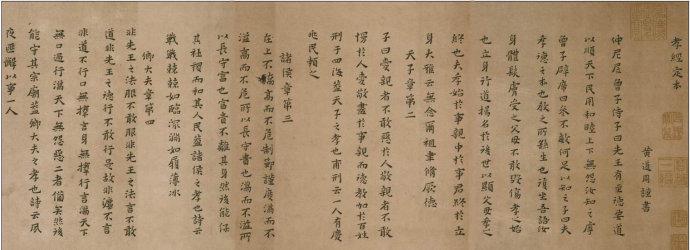 孝經定本
黃道周謹書
仲尼凥曾子侍子曰先王有至德要道
以順天下民用和睦上下無怨汝知之虖
曾子辟席曰參不敏何足以知之子曰夫
孝德之本也教之所繇生也復坐吾語汝
身體髮膚受之父母不敢毀傷孝之始
也立身行道揚名於後世以顯父母孝之
終也夫孝始於事親中於事君終於立
身大雅云無念爾祖聿脩厥德
天子章第二
子曰愛親者不敢惡於人敬親者不敢
慢於人愛敬盡於事親而德教加於百姓
刑于四海蓋天子之孝也甫刑云一人有慶
兆民賴之
諸侯章第三
在上不驕高而不危制節謹度滿而不
溢高而不危所以長守貴也滿而不溢所
以長守富也富貴不離其身然後能保
其社稷而和其人民蓋諸侯之孝也詩云
戰戰兢兢如臨深淵如履薄冰
卿大夫章第四
非先王之法服不敢服非先王之法言不敢
道非先王之德行不敢行是故非灋不言
非道不行口無擇言身無擇行言滿天下
無口過行滿天下無怨惡三者備矣然後
能守其宗廟蓋卿大夫之孝也詩云夙
夜匪懈以事一人